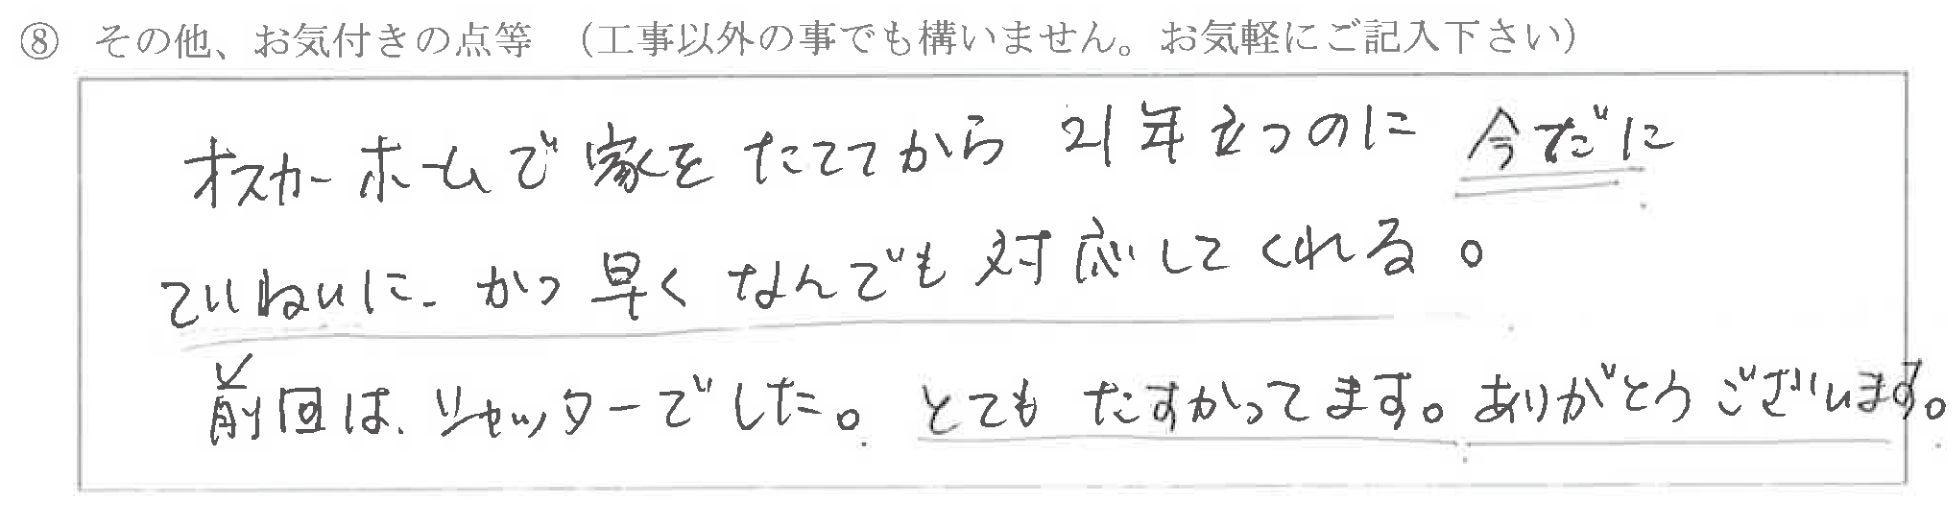 ⑧ その他、お気付きの点等 （工事以外の事でも構いません。お気軽にご記入下さい）
オスカーホームで家をたててから 21年立つのに 今だに
ていねいに、かつ早くなんでも対応してくれる。
前回は、シャッターでした。とてもたすかってます。ありがとうございます。